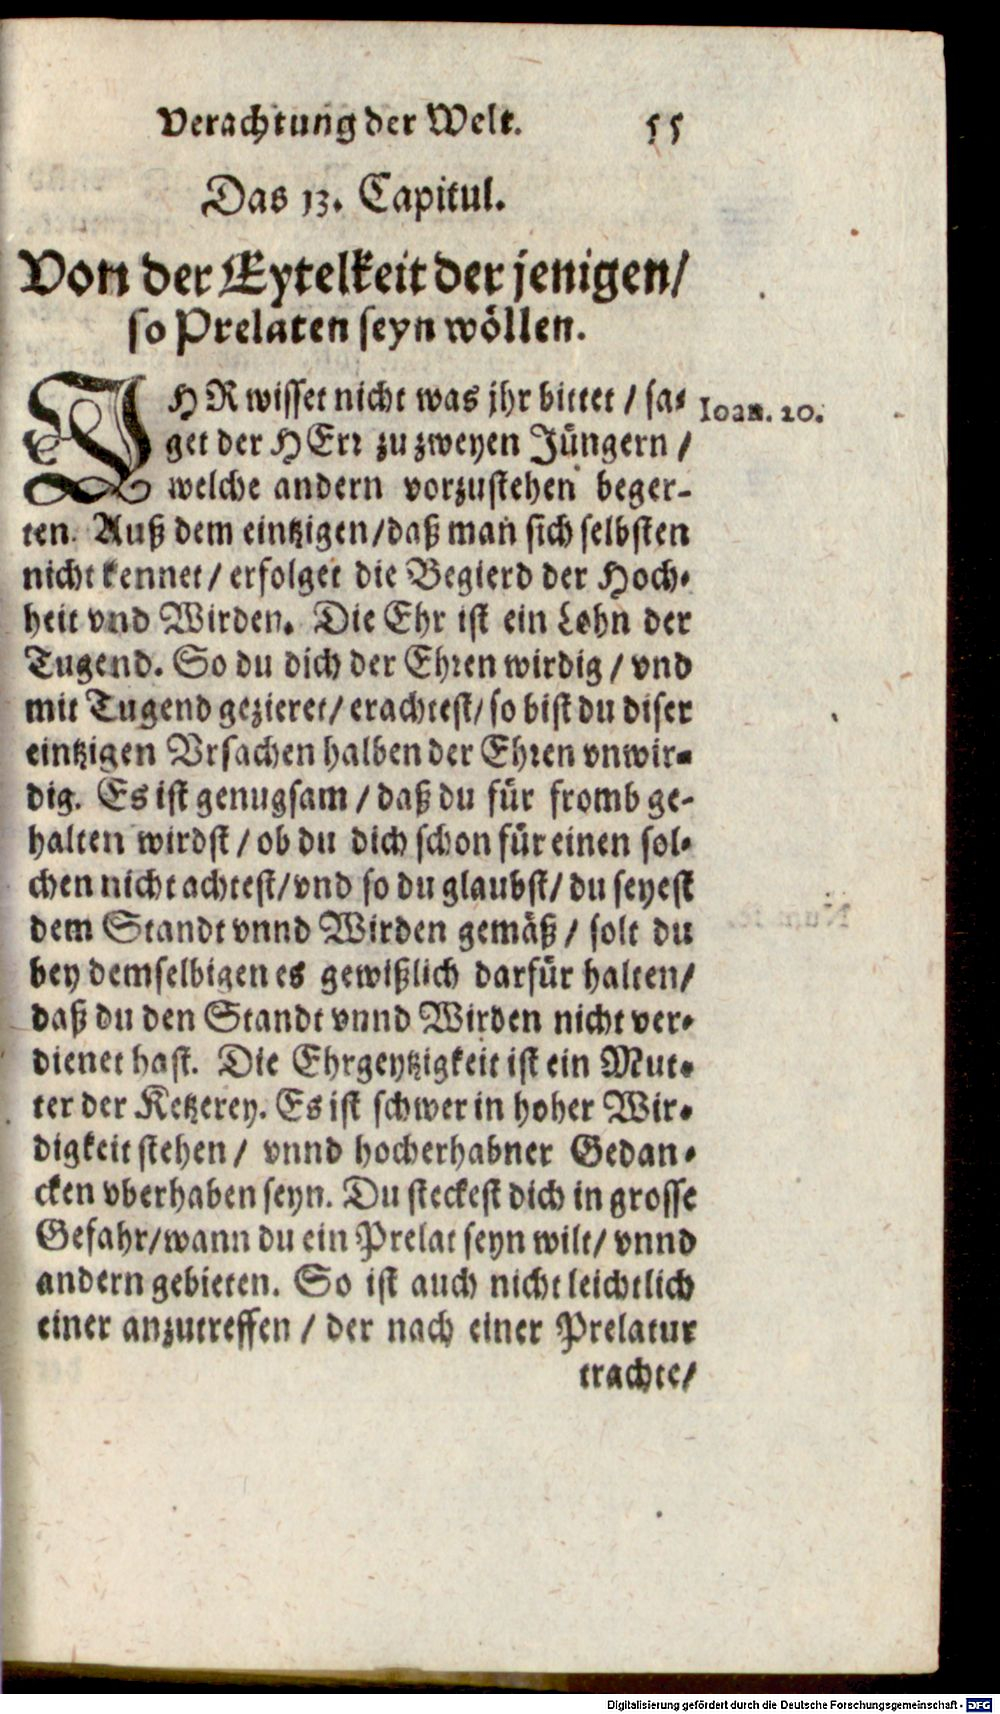 Verachtung der Welt. 55
Das 13. Capitul.
Von der Eytelkeit der jenigen/
so Prelaten seyn wöllen.
IHR wisset nicht was jhr bittet / sa- Ioan. 20.
get der HErr zu zweyen Jüngern /
welche andern vorzustehen beger-
ten. Auß dem eintzigen/daß man sich selbsten
nicht kennet / erfolget die Begierd der Hoch-
heit vnd Wirden. Die Ehr ist ein Lohn der
Tugend. So du dich der Ehren wirdig / vnd
mit Tugend gezieret/ erachtest/ so bist du diser
eintzigen Vrsachen halben der Ehren vnwir-
dig. Es ist genugsam / daß du für fromb ge-
halten wirdst / ob du dich schon für einen sol-
chen nicht achtest/vnd so du glaubst/ du seyest
dem Standt vnnd Wirden gemäß / solt du
bey demselbigen es gewißlich darfür halten/
daß du den Standt vnnd Wirden nicht ver-
dienet hast. Die Ehrgeytzigkeit ist ein Mut-
ter der Ketzerey. Es ist schwer in hoher Wir-
digkeit stehen / vnnd hocherhabner Gedan-
cken vberhaben seyn. Du steckest dich in grosse
Gefahr/wann du ein Prelat seyn wilt/ vnnd
andern gebieten. So ist auch nicht leichtlich
einer anzutreffen / der nach einer Prelatur
trachte/
Digitalisierung gefördert durch die Deutsche Forschungsgemeinschaft - DFG